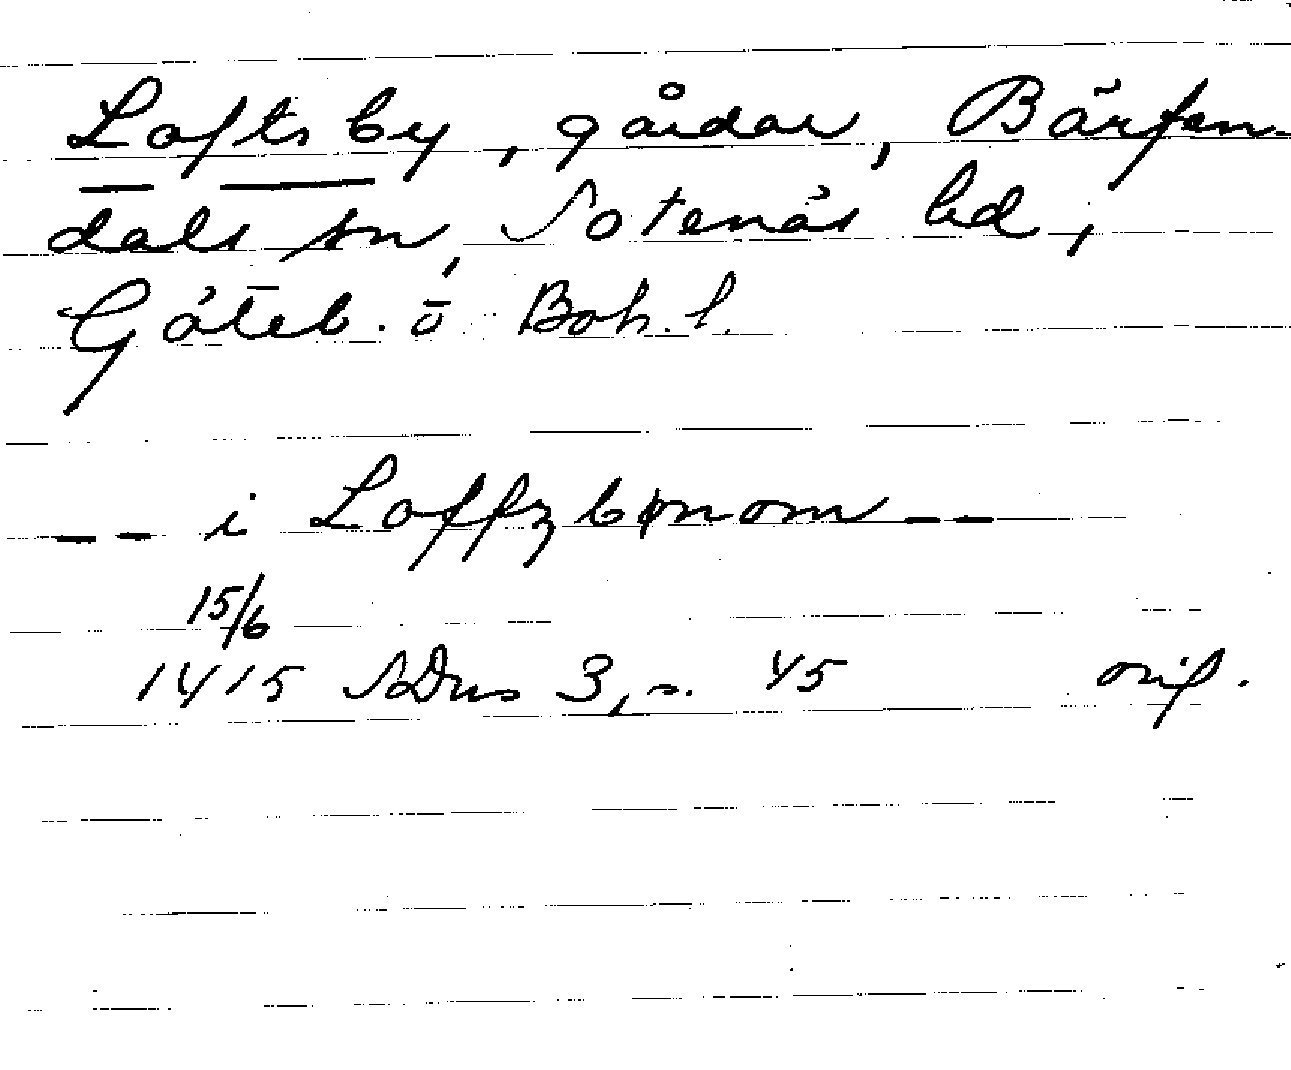 Loftsby, gårdar, Bärfen-
dals sn, Sotenäs hd,
Göteb. o. Boh. l.
-- i Loffzbønom --
15/6
1415 SDns 3, s. 45 orig.